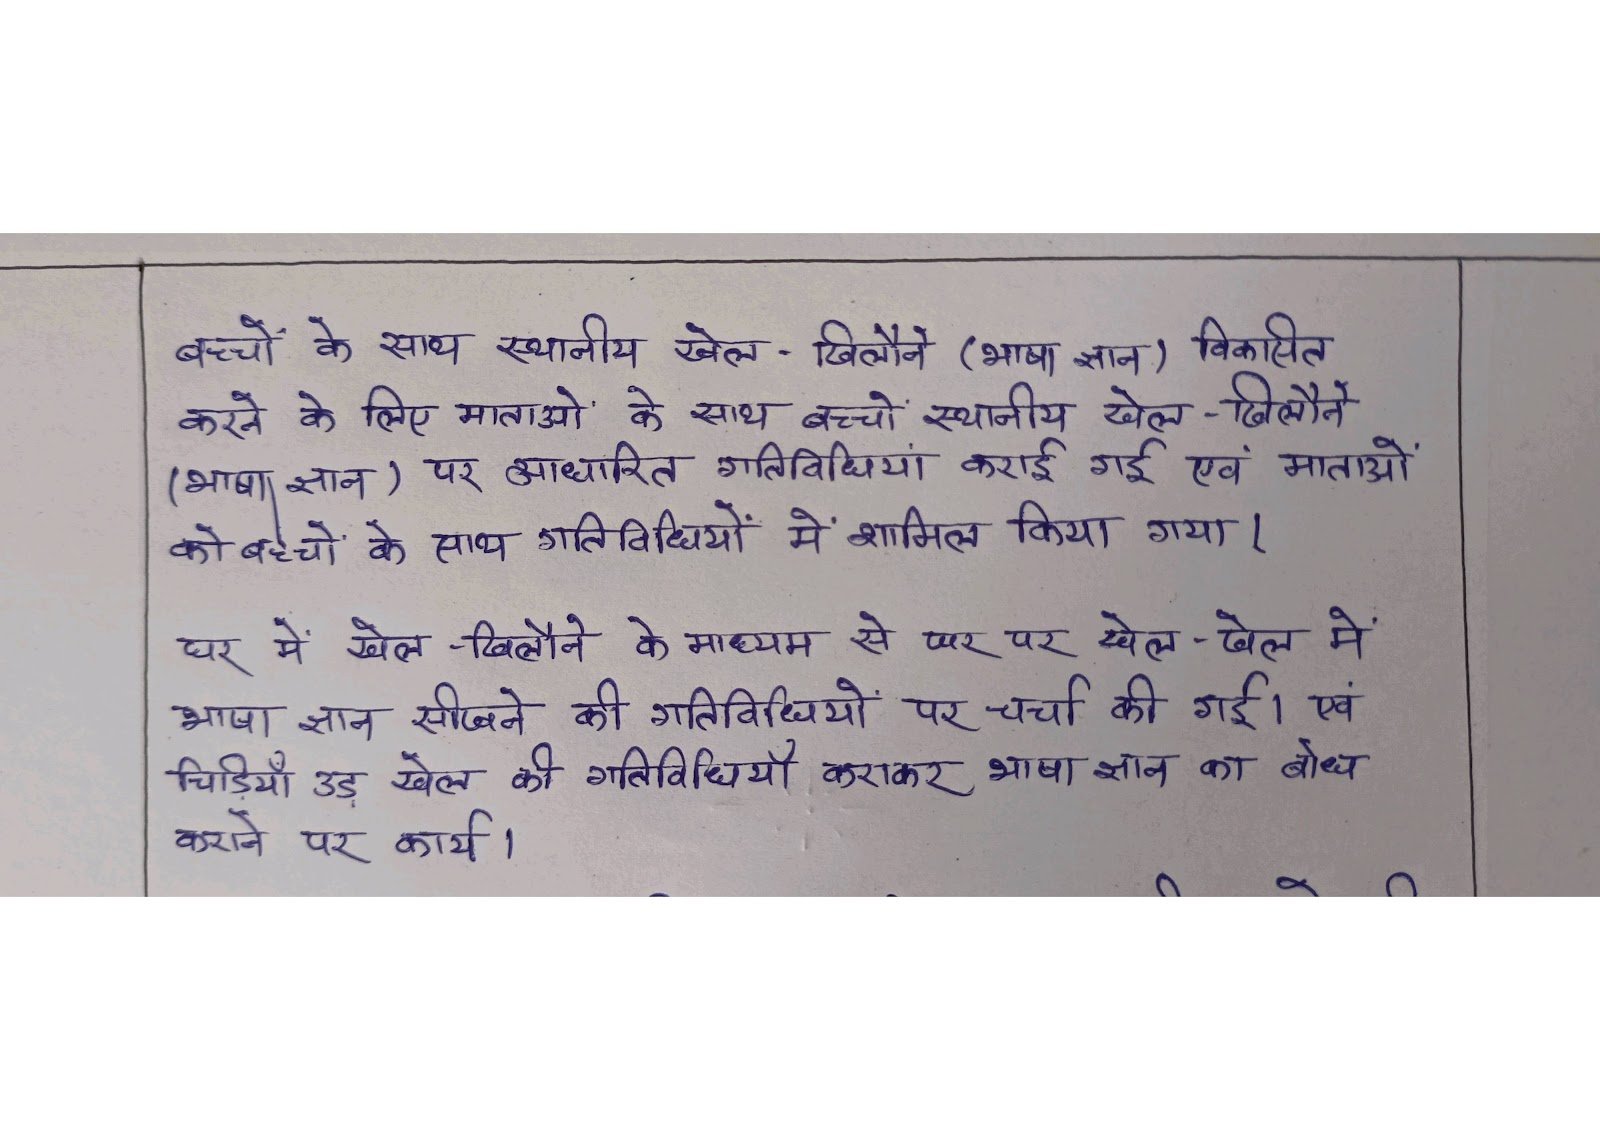 बच्चों के साथ स्थानीय खेल - खिलौने (भाषा ज्ञान) विकसित
करने के लिए माताओं के साथ बच्चों स्थानीय खेल - खिलौने
(भाषा ज्ञान) पर आधारित गतिविधियां कराई गई एवं माताओं
को बच्चों के साथ गतिविधियों में शामिल किया गया।
घर में खेल - खिलौने के माध्यम से घर पर खेल - खेल में
भाषा ज्ञान सीखने की गतिविधियों पर चर्चा की गई। एवं
चिड़ियाँ उड़ खेल की गतिविधियाँ कराकर भाषा ज्ञान का बोध
कराने पर कार्य।